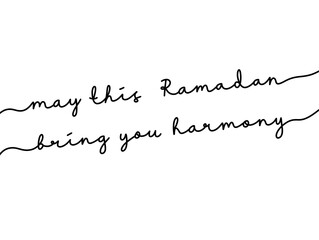 may this Ramadan
bring you harmony